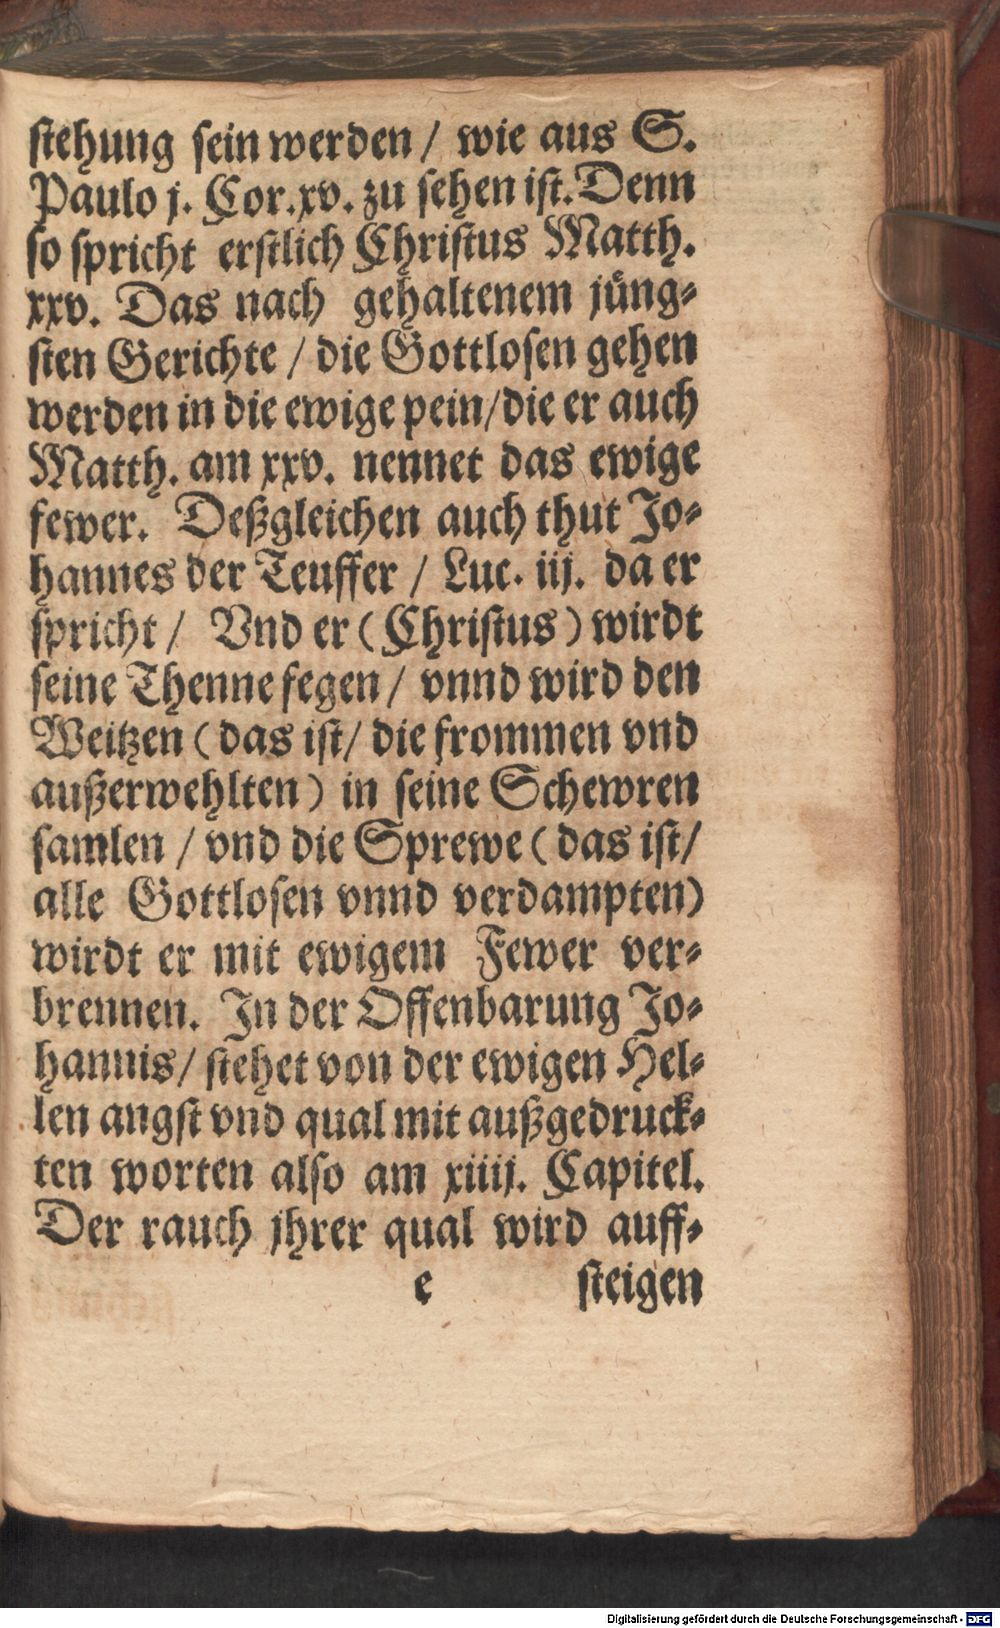 stehung sein werden / wie aus S.
Paulo j. Cor. xv. zu sehen ist. Denn
so spricht erstlich Christus Matth.
xxv. Das nach gehaltenem jüng-
sten Gerichte / die Gottlosen gehen
werden in die ewige pein / die er auch
Matth. am xxv. nennet das ewige
fewer. Deßgleichen auch thut Jo-
hannes der Teuffer / Luc. iij. da er
spricht / Vnd er ( Christus ) wirdt
seine Thenne fegen / vnnd wird den
Weitzen ( das ist / die frommen vnd
außerwehlten ) in seine Schewren
samlen / vnd die Sprewe ( das ist /
alle Gottlosen vnnd verdampten )
wirdt er mit ewigem Fewer ver-
brennen. In der Offenbarung Jo-
hannis / stehet von der ewigen Hel-
len angst vnd qual mit außgedruck-
ten worten also am xiiij. Capitel.
Der rauch jhrer qual wird auff-
e steigen
Digitalisierung gefördert durch die Deutsche Forschungsgemeinschaft - DFG